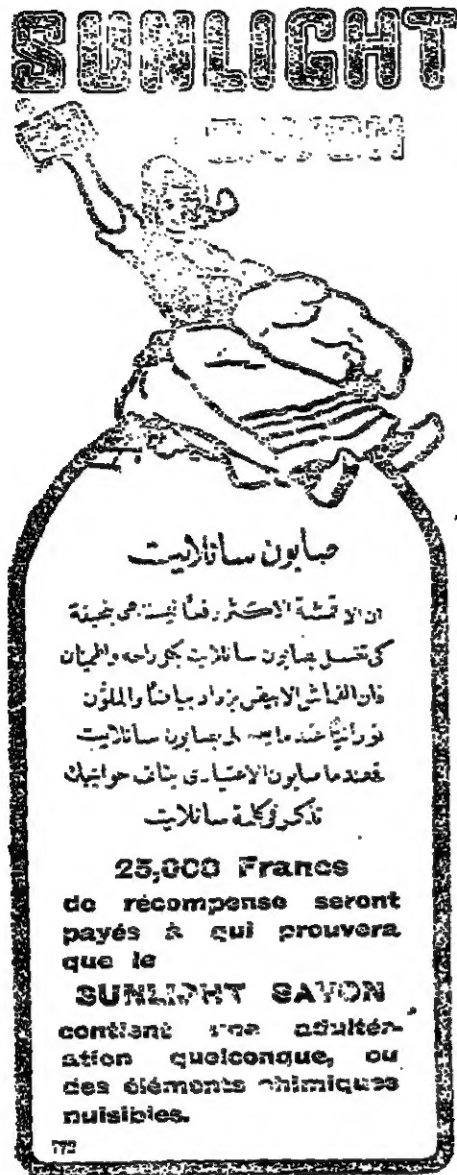 SUNLIGHT
SAVON
صابون سانلايت
ان الاقمشة الاكثر رفعًا ليست هي نحيفة
كي تغسل بصابون سانلايت بكل راحه واطمئنان
فان القماش الابيض يزداد بياضًا والملوّن
نورانيًا عندما يغسل بصابون سانلايت
فعندما صابون الاعتيادى يتلف حوايجك
تذكر كلمة سانلايت
25,000 Francs
de récompense seront
payés à qui prouvera
que le
SUNLIGHT SAVON
contient une adultér-
ation quelconque, ou
des éléments chimiques
nuisibles.